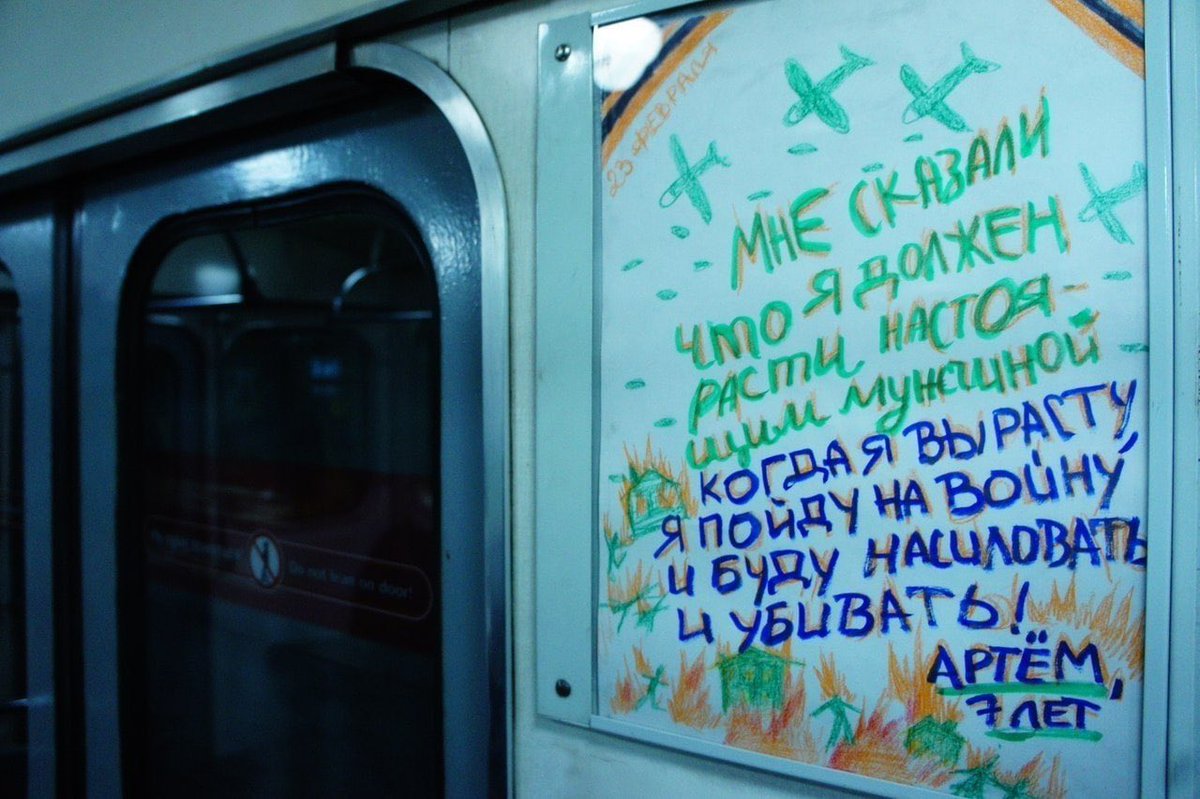 23 ФЕВРАЛЯ
МНЕ СКАЗАЛИ
ЧТО Я ДОЛЖЕН
РАСТИ НАСТОЯ-
ЩИМ МУЖЧИНОЙ
КОГДА Я ВЫРАСТУ,
Я ПОЙДУ НА ВОЙНУ
И БУДУ НАСИЛОВАТЬ
И УБИВАТЬ!
АРТЁМ,
7 ЛЕТ
Do not lean on door!